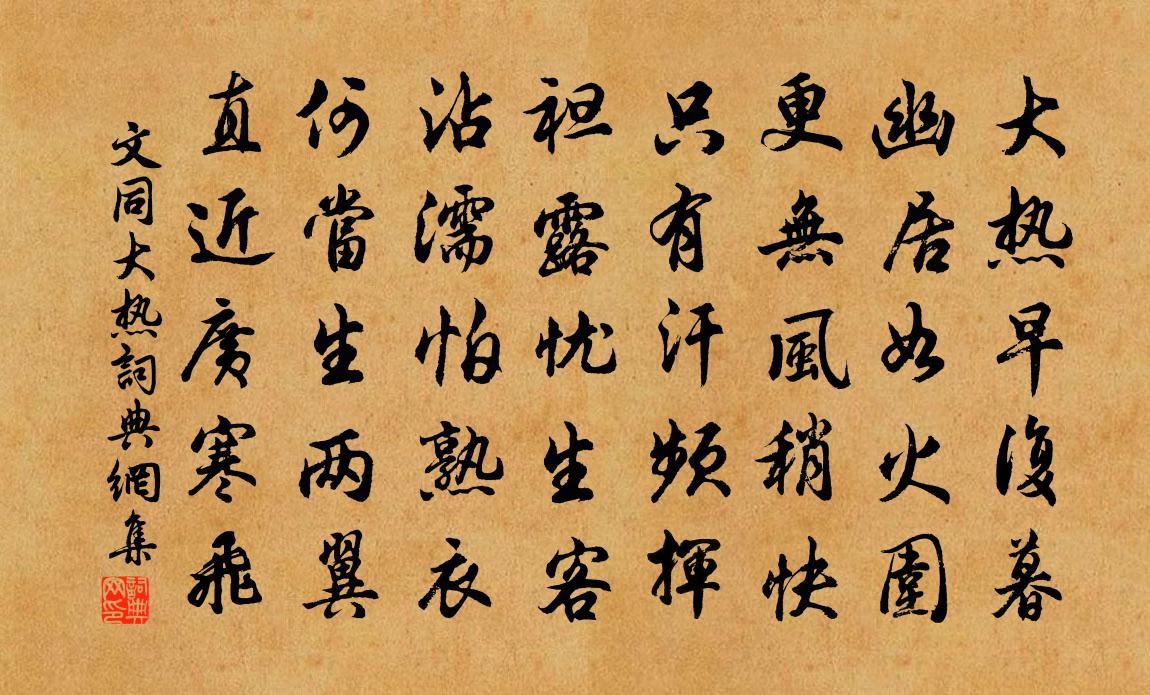 大热早復暮
幽居如火圍
更無風稍快
只有汗頻揮
袒露忧生客
沾濡怕熟衣
何當生两翼
直近廣寒飛
文同大热詞典網集
詞典网印